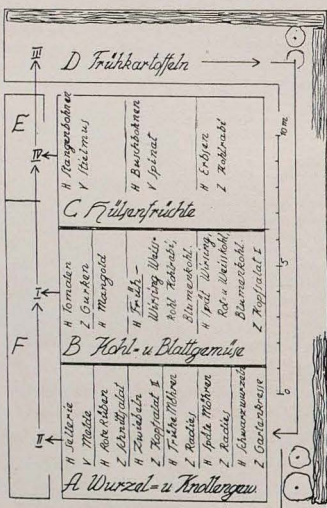 III
D Frühkartoffeln
E
IV
H Stangenbohnen
V Stielmus
H Buschbohnen
V Spinat
H Erbsen
Z Kohlrabi
C Hülsenfrüchte
10 m
5
0
F
I
H Tomaten
Z Gurken
H Mangold
H Früh-
Wirsing Weiss-
kohl Kohlrabi,
Blumenkohl.
H Spät Wirsing,
Rot- u Weisskohl,
Blumenkohl
Z Kopfsalat I
B Kohl- u Blattgemüse
II
H Sellerie
V Melde
H Rote Rüben
Z Schnittsalat
H Zwiebeln
Z Kopfsalat II
H Frühe Möhren
Z Radies
H Späte Möhren
Z Radies
H Schwarzwurzeln
Z Gartenkresse
A Wurzel- u Knollengew.